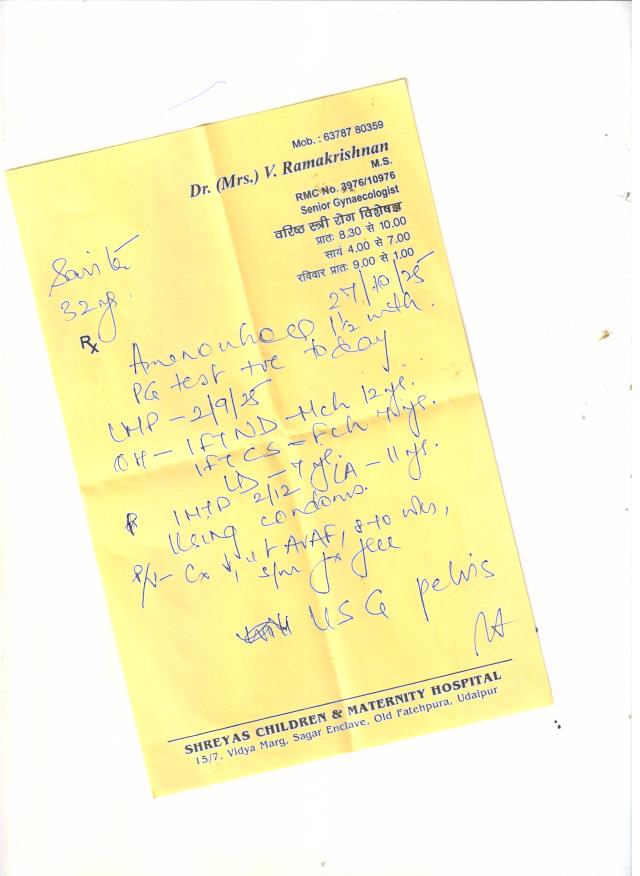 Mob. : 63787 80359
Dr. (Mrs.) V. Ramakrishnan
M.S.
RMC No. 3976/10976
Senior Gynaecologist
वरिष्ठ स्त्री रोग विशेषज्ञ
प्रातः 8.30 से 10.00
सायं 4.00 से 7.00
रविवार प्रातः 9.00 से 1.00
32 yr.
27/10/25
Rx
1½ mth.
PG test +ve today
LMP - 2/9/25
OH - 1FTND - Mch 12 yr.
1FTCS - Fch
LD - 7 yr.
2/12 LA - 11 yr.
Using condoms.
P/V - Cx ↓, ut AVAF, 8-10 wks,
USG pelvis
SHREYAS CHILDREN & MATERNITY HOSPITAL
15/7, Vidya Marg, Sagar Enclave, Old Fatehpura, Udaipur